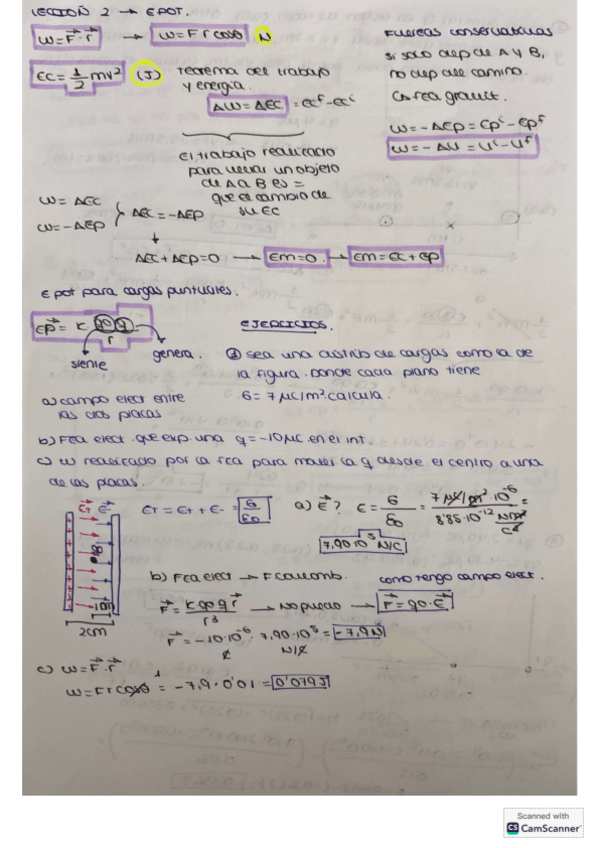 LECCIÓN 2 → EPOT.
W = F⃗ · r⃗ → W = F r cosθ N
EC = 1/2 mv² (J) Teorema del trabajo y energía.
ΔW = ΔEC = ECᶠ - ECⁱ
El trabajo realizado
para llevar un objeto
de A a B es =
que el cambio de
su EC
Fuerzas conservativas
si solo dep de A y B,
no dep del camino.
W = -ΔEp = Epⁱ - Epᶠ
W = -ΔU = Uⁱ - Uᶠ
W = ΔEC
W = -ΔEp } ΔEC = -ΔEp
↓
ΔEC + ΔEp = 0 → Em = 0. → Em = Ec + Ep
E pot para cargas puntuales.
Ep = K q0 q / r
siente genera.
EJERCICIOS.
① Sea una distrib de cargas como la de
la figura. Donde cada plano tiene
б = 7 μC/m². Calcula.
a) campo elect entre
las dos placas
b) Fza elect. que exp una q = -10 μC en el int.
c) W realizado por la fza para mover la q desde el centro a una
de las placas.
E⃗+ E⃗-
ET = E+ + E- = б/εo
a) E⃗? E = б/εo = 7 μC/m² · 10⁻⁶ / 8'85·10⁻¹² =
7,90·10⁵ N/C
2cm
b) Fza elect → F coulomb. como tengo campo elect.
F⃗ = K q0 q r⃗ / r³ → No puedo → F⃗ = q0 · E⃗
F⃗ = -10·10⁻⁶ · 7,90·10⁵ = -7,9 N
C N/C
c) W = F⃗ · r⃗
W = F r cosθ = -7,9 · 0'01 = 0'079 J
Scanned with
CS CamScanner